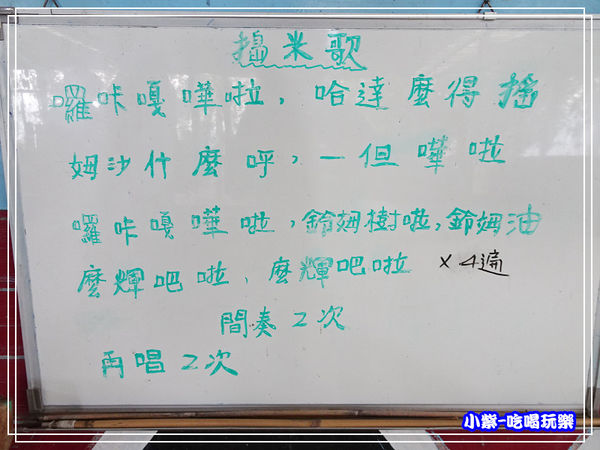 搗米歌
囉咔嘎嘩啦，哈達麼得搖
姆沙什麼呼，一但嘩啦
囉咔嘎嘩啦，鈴姆樹啦，鈴姆油
麼輝吧啦、麼輝吧啦 ×4遍
間奏2次
再唱2次
小紫-吃喝玩樂